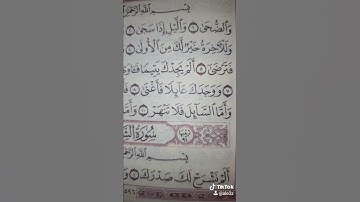 بِسْمِ اللَّهِ الرَّحْمَٰنِ
وَالضُّحَىٰ ١ وَالَّيْلِ إِذَا سَجَىٰ ٢
وَلَلْآخِرَةُ خَيْرٌ لَّكَ مِنَ الْأُولَىٰ
فَتَرْضَىٰ ٥ أَلَمْ يَجِدْكَ يَتِيمًا فَـَٔاوَىٰ
٧ وَوَجَدَكَ عَآئِلًا فَأَغْنَىٰ
وَأَمَّا السَّآئِلَ فَلَا تَنْهَرْ ١٠
سُورَةُ
بِسْمِ اللَّهِ الرَّحْمَٰنِ
أَلَمْ نَشْرَحْ لَكَ صَدْرَكَ ١
٥٩٦
TikTok